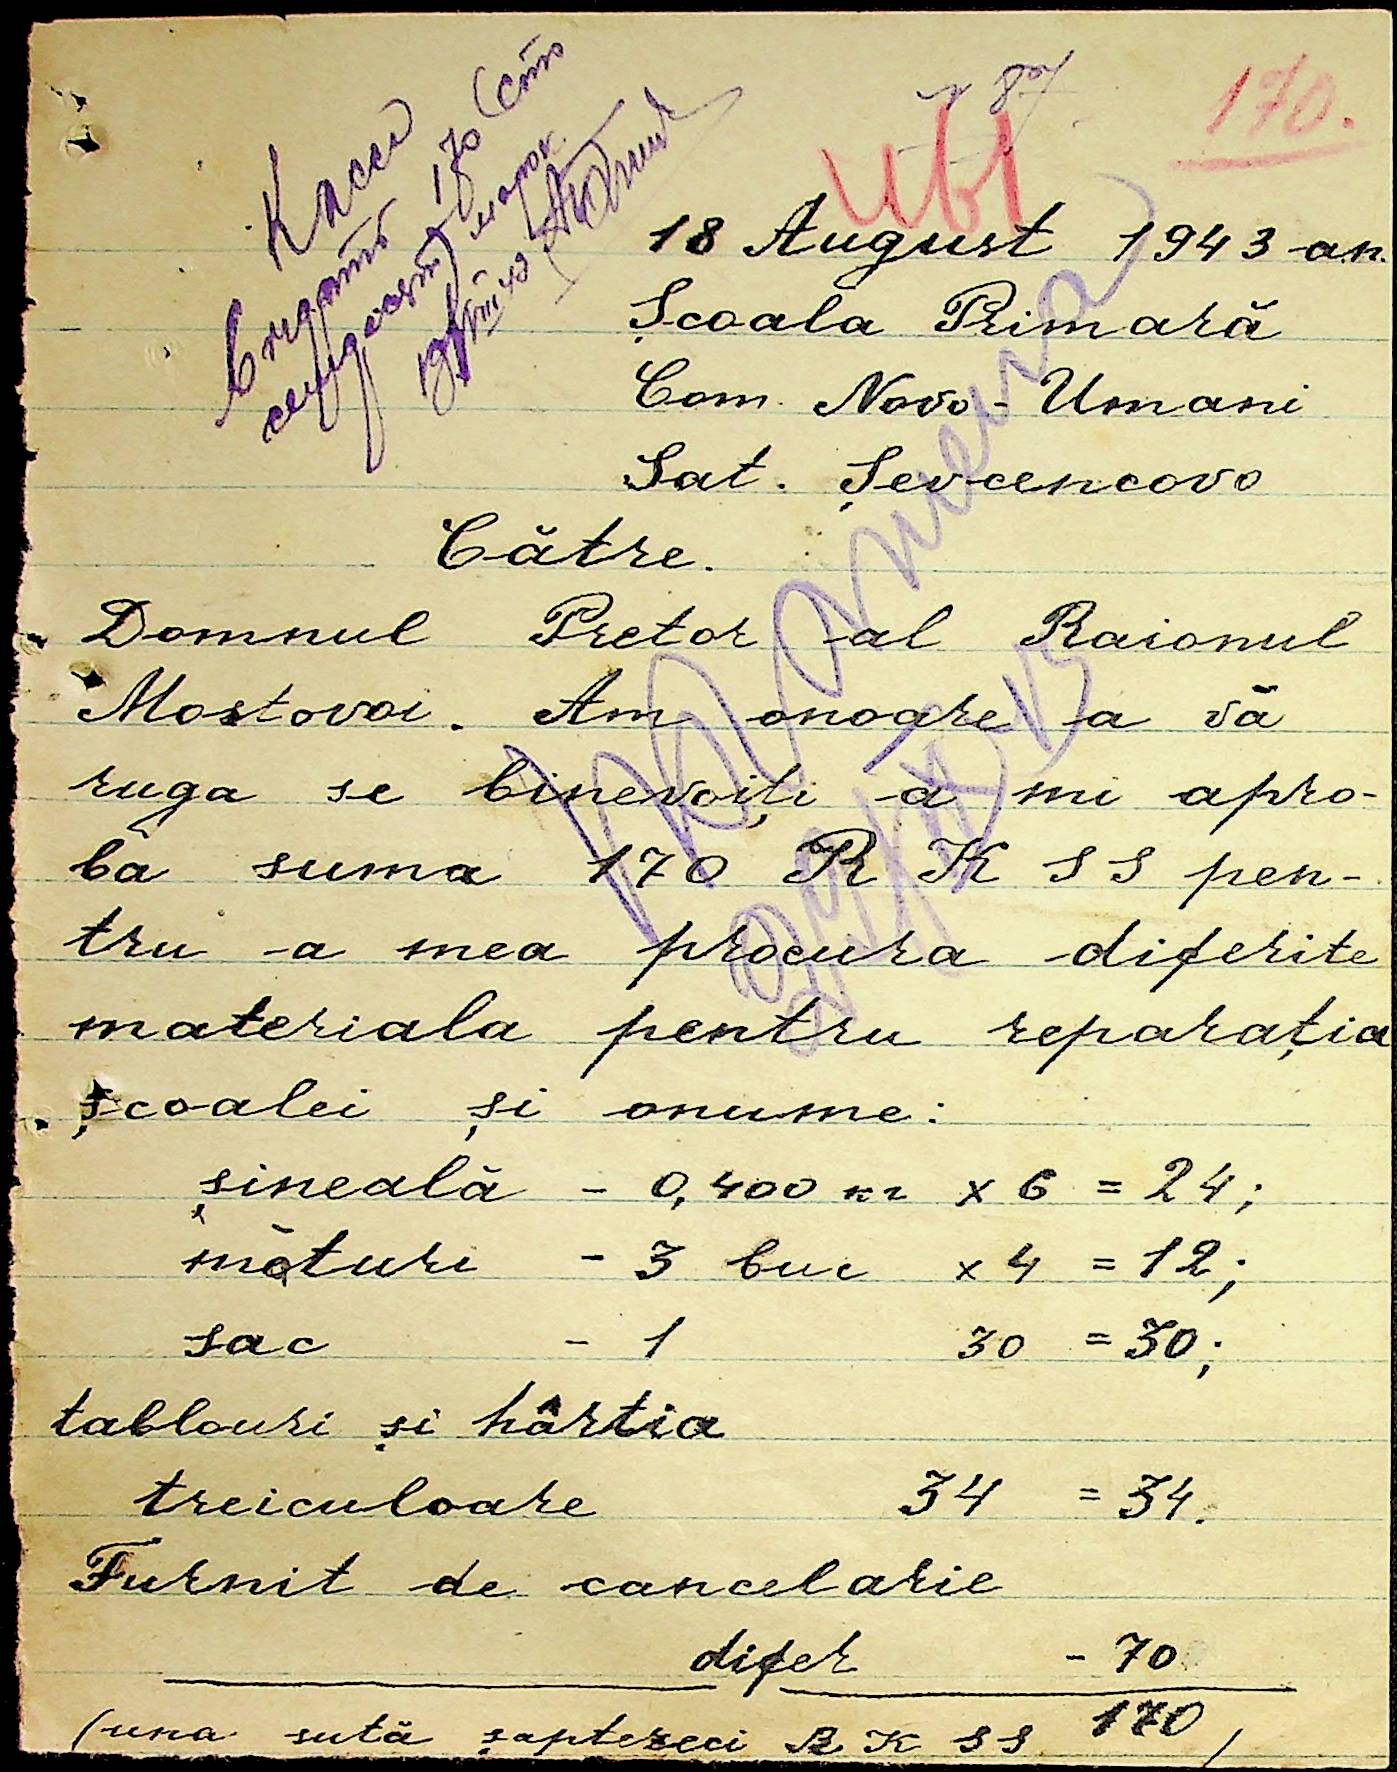 170.
Касса
Выдать 170 (сто
семьдесят) марок
18 August 1943 an.
Școala Primară
Com. Novo-Umani
Sat. Șevcencovo
Către.
Domnul Pretor al Raionul
Mostovoi. Am onoare a vă
ruga se binevoiți a mi apro-
ba suma 170 R K S S pen-
tru a mea procura diferite
materiala pentru reparația
școalei și anume:
șineală - 0,400 кг x 6 = 24;
mături - 3 buc x 4 = 12;
sac - 1 30 = 30;
tablouri și hârtia
treiculoare 34 = 34.
Furnit de cancelarie
difer - 70
170
(una sută șaptezeci R K S S)